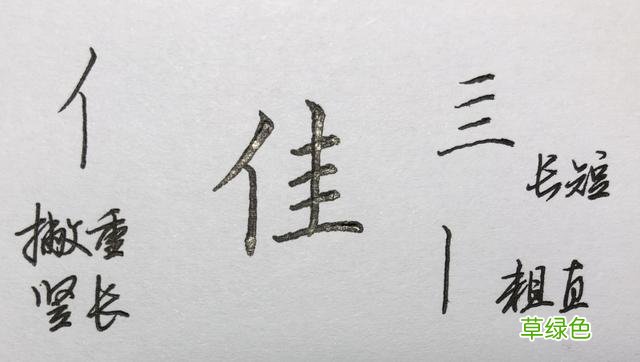 亻
撇重
竖长
佳
三
长短
丨
粗直
草绿色